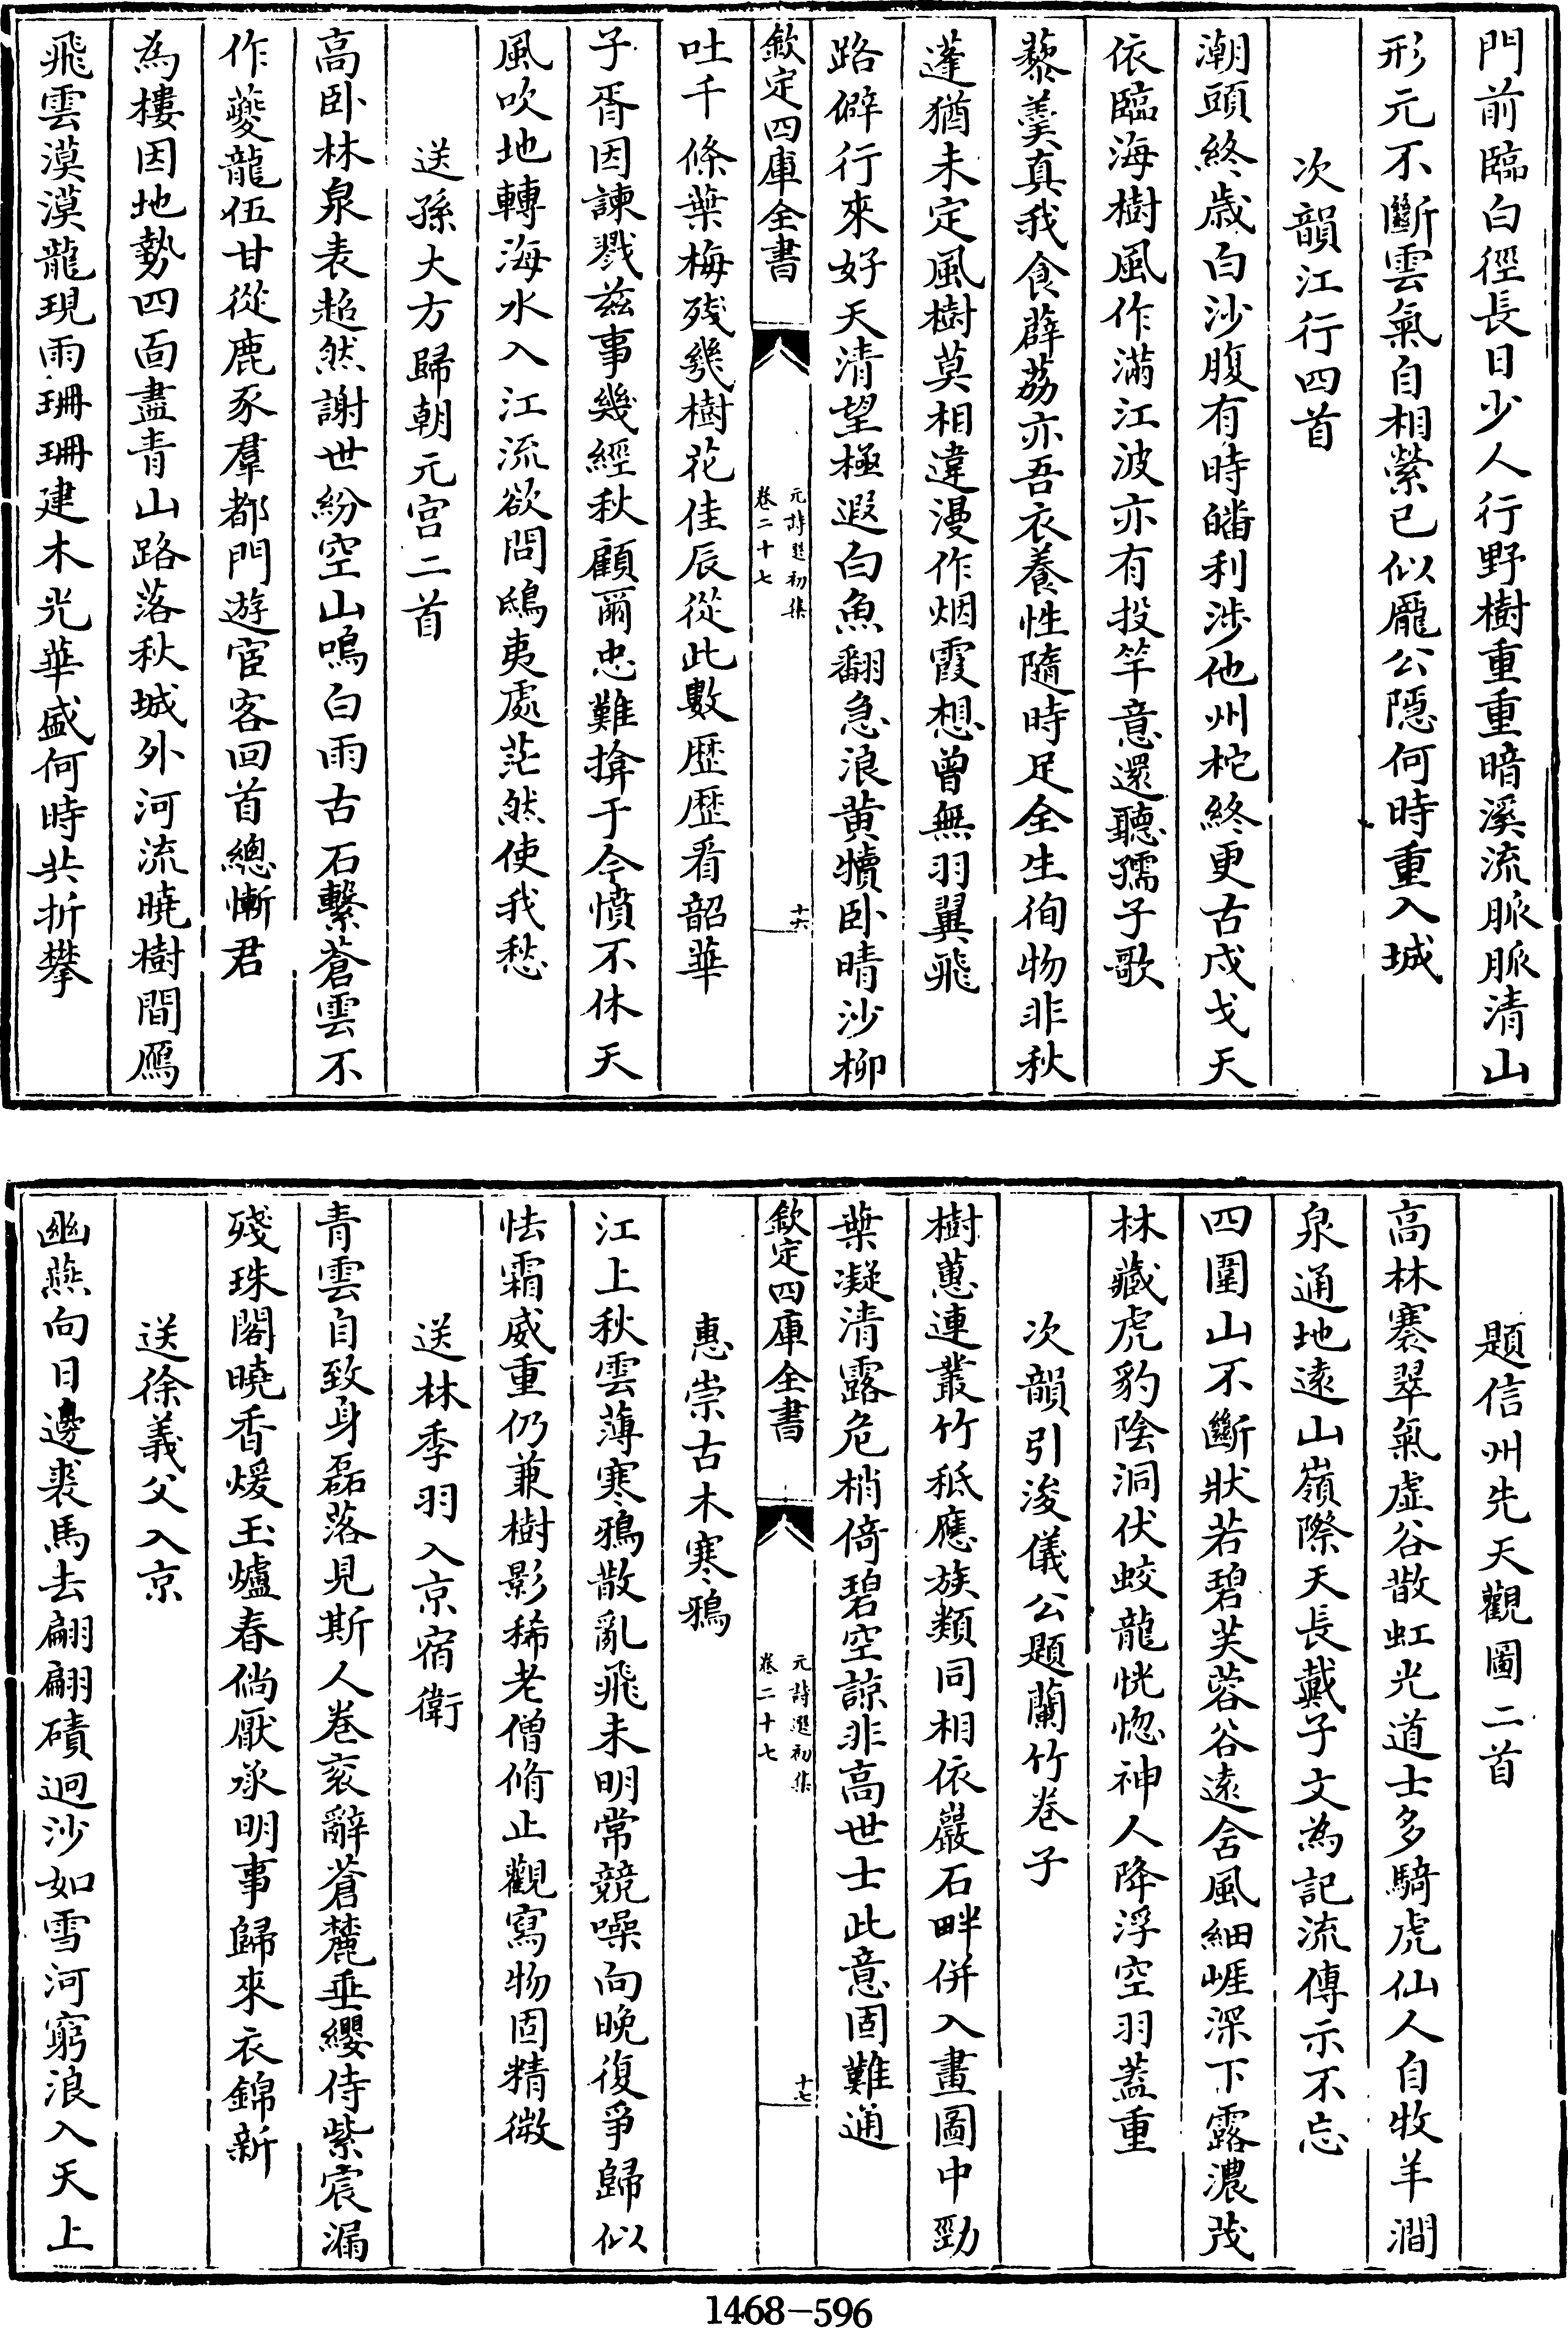 門前臨白徑長日少人行野樹重重暗溪流脈脈清山
形元不斷雲氣自相縈已似龐公隱何時重入城
次韻江行四首
潮頭終歲白沙腹有時皤利涉他州柁終更古戍戈天
依臨海樹風作滿江波亦有投竿意還聽孺子歌
藜羹真我食薜荔亦吾衣養性隨時足全生徇物非秋
蓬猶未定風樹莫相違漫作烟霞想曾無羽翼飛
路僻行來好天清望極遐白魚翻急浪黄犢卧晴沙柳
欽定四庫全書
元詩選初集
卷二十七
十六
吐千條葉梅殘幾樹花佳辰從此數歴歴看韶華
子胥因諫戮兹事幾經秋顧爾忠難揜于今憤不休天
風吹地轉海水入江流欲問鴟夷處茫然使我愁
送孫大方歸朝元宫二首
高卧林泉表超然謝世紛空山鳴白雨古石繫蒼雲不
作夔龍伍甘從鹿豕羣都門遊宦客回首總慚君
為樓因地勢四面盡青山路落秋城外河流曉樹間鴈
飛雲漠漠龍現雨珊珊建木光華盛何時共折攀
題信州先天觀圖二首
高林褰翠氣虛谷散虹光道士多騎虎仙人自牧羊澗
泉通地遠山嶺際天長戴子文為記流傳示不忘
四圍山不斷狀若碧芙蓉谷遠含風細崕深下露濃茂
林藏虎豹陰洞伏蛟龍恍惚神人降浮空羽蓋重
次韻引浚儀公題蘭竹卷子
樹蕙連叢竹秪應族類同相依巖石畔併入畫圖中勁
葉凝清露危梢倚碧空諒非高世士此意固難通
欽定四庫全書
元詩選初集
卷二十七
十七
惠崇古木寒鴉
江上秋雲薄寒鴉散亂飛未明常競噪向晚復爭歸似
怯霜威重仍兼樹影稀老僧脩止觀寫物固精微
送林季羽入京宿衛
青雲自致身磊落見斯人卷衮辭蒼麓垂纓侍紫宸漏
殘珠閣曉香煖玉爐春倘厭承明事歸來衣錦新
送徐義父入京
幽燕向日邊裘馬去翩翩磧迥沙如雪河窮浪入天上
1468-596